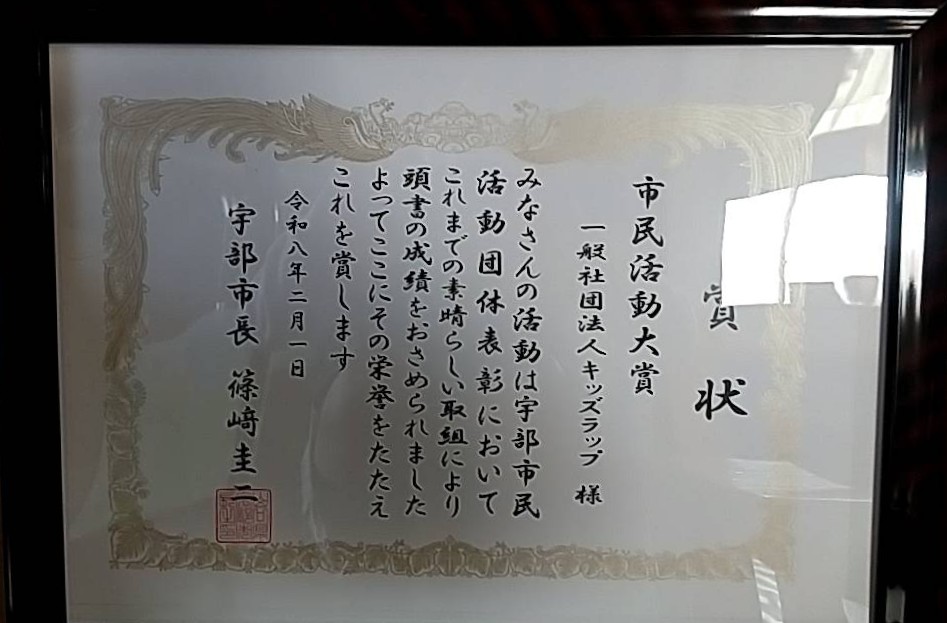 賞状
市民活動大賞
一般社団法人キッズラップ 様
みなさんの活動は宇部市民
活動団体表彰において
これまでの素晴らしい取組により
頭書の成績をおさめられました
よってここにその栄誉をたたえ
これを賞します
令和八年二月一日
宇部市長 篠﨑圭二